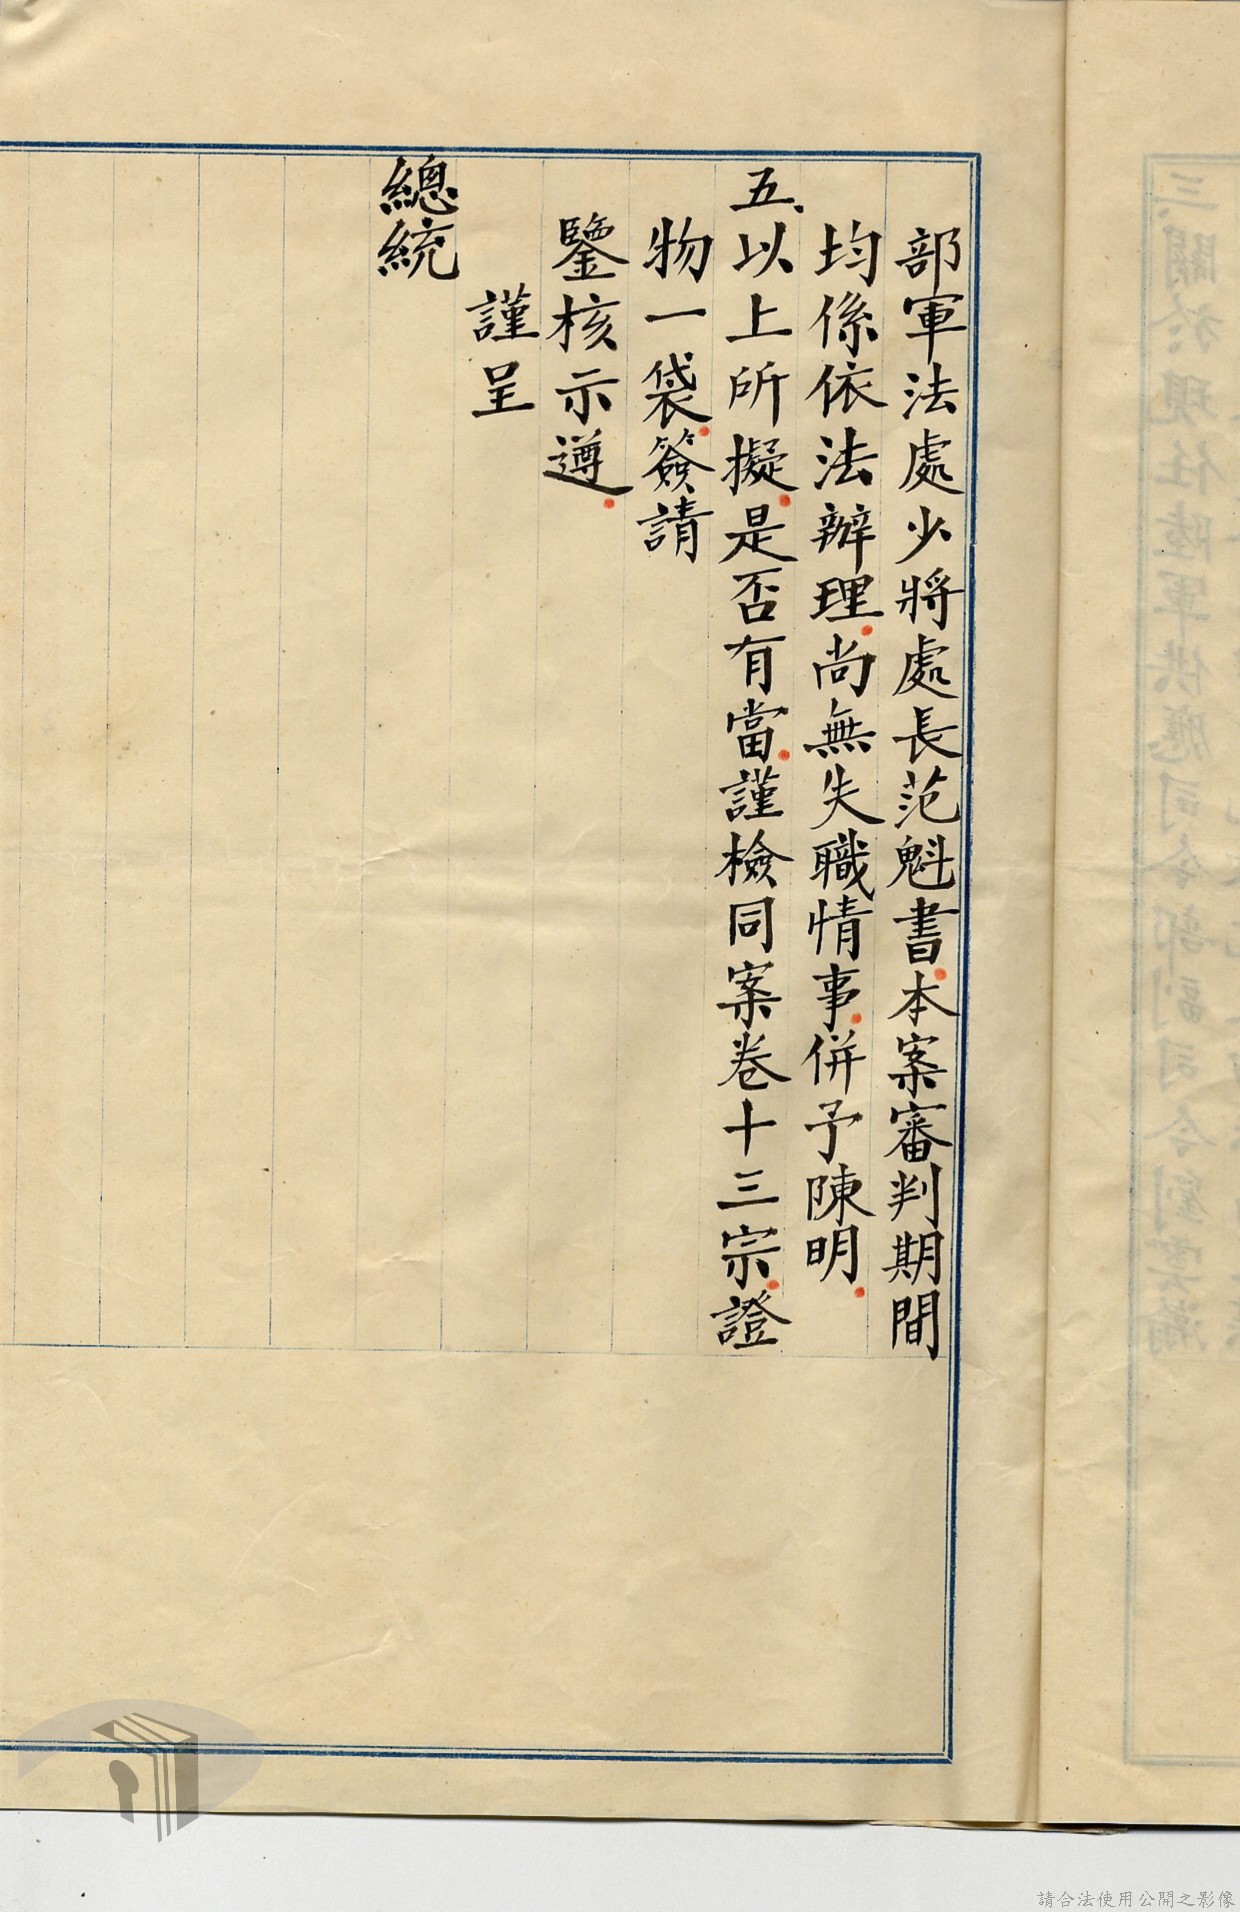 部軍法處少將處長范魁書。本案審判期間
均係依法辦理。尚無失職情事。併予陳明。
五、以上所擬。是否有當。謹檢同案卷十三宗。證
物一袋。簽請
鑒核示遵。
謹呈
總統
請合法使用公開之影像